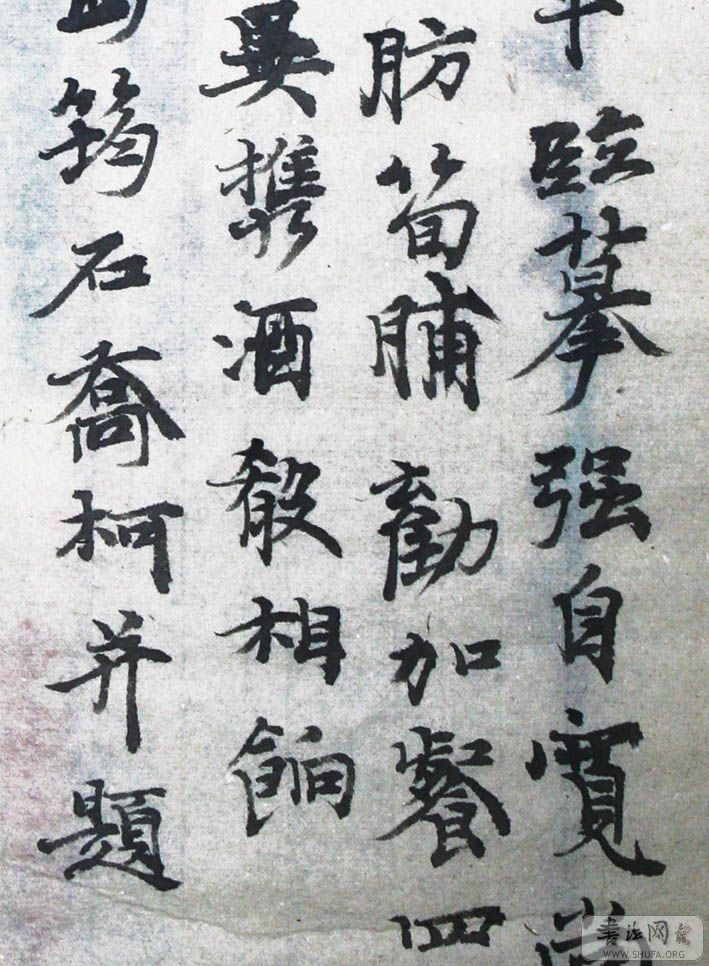 臨摹强自寬
肪筍脯勸加餐四
異携酒殽相餉
筠石喬柯并題
書法网
WWW.SHUFA.ORG